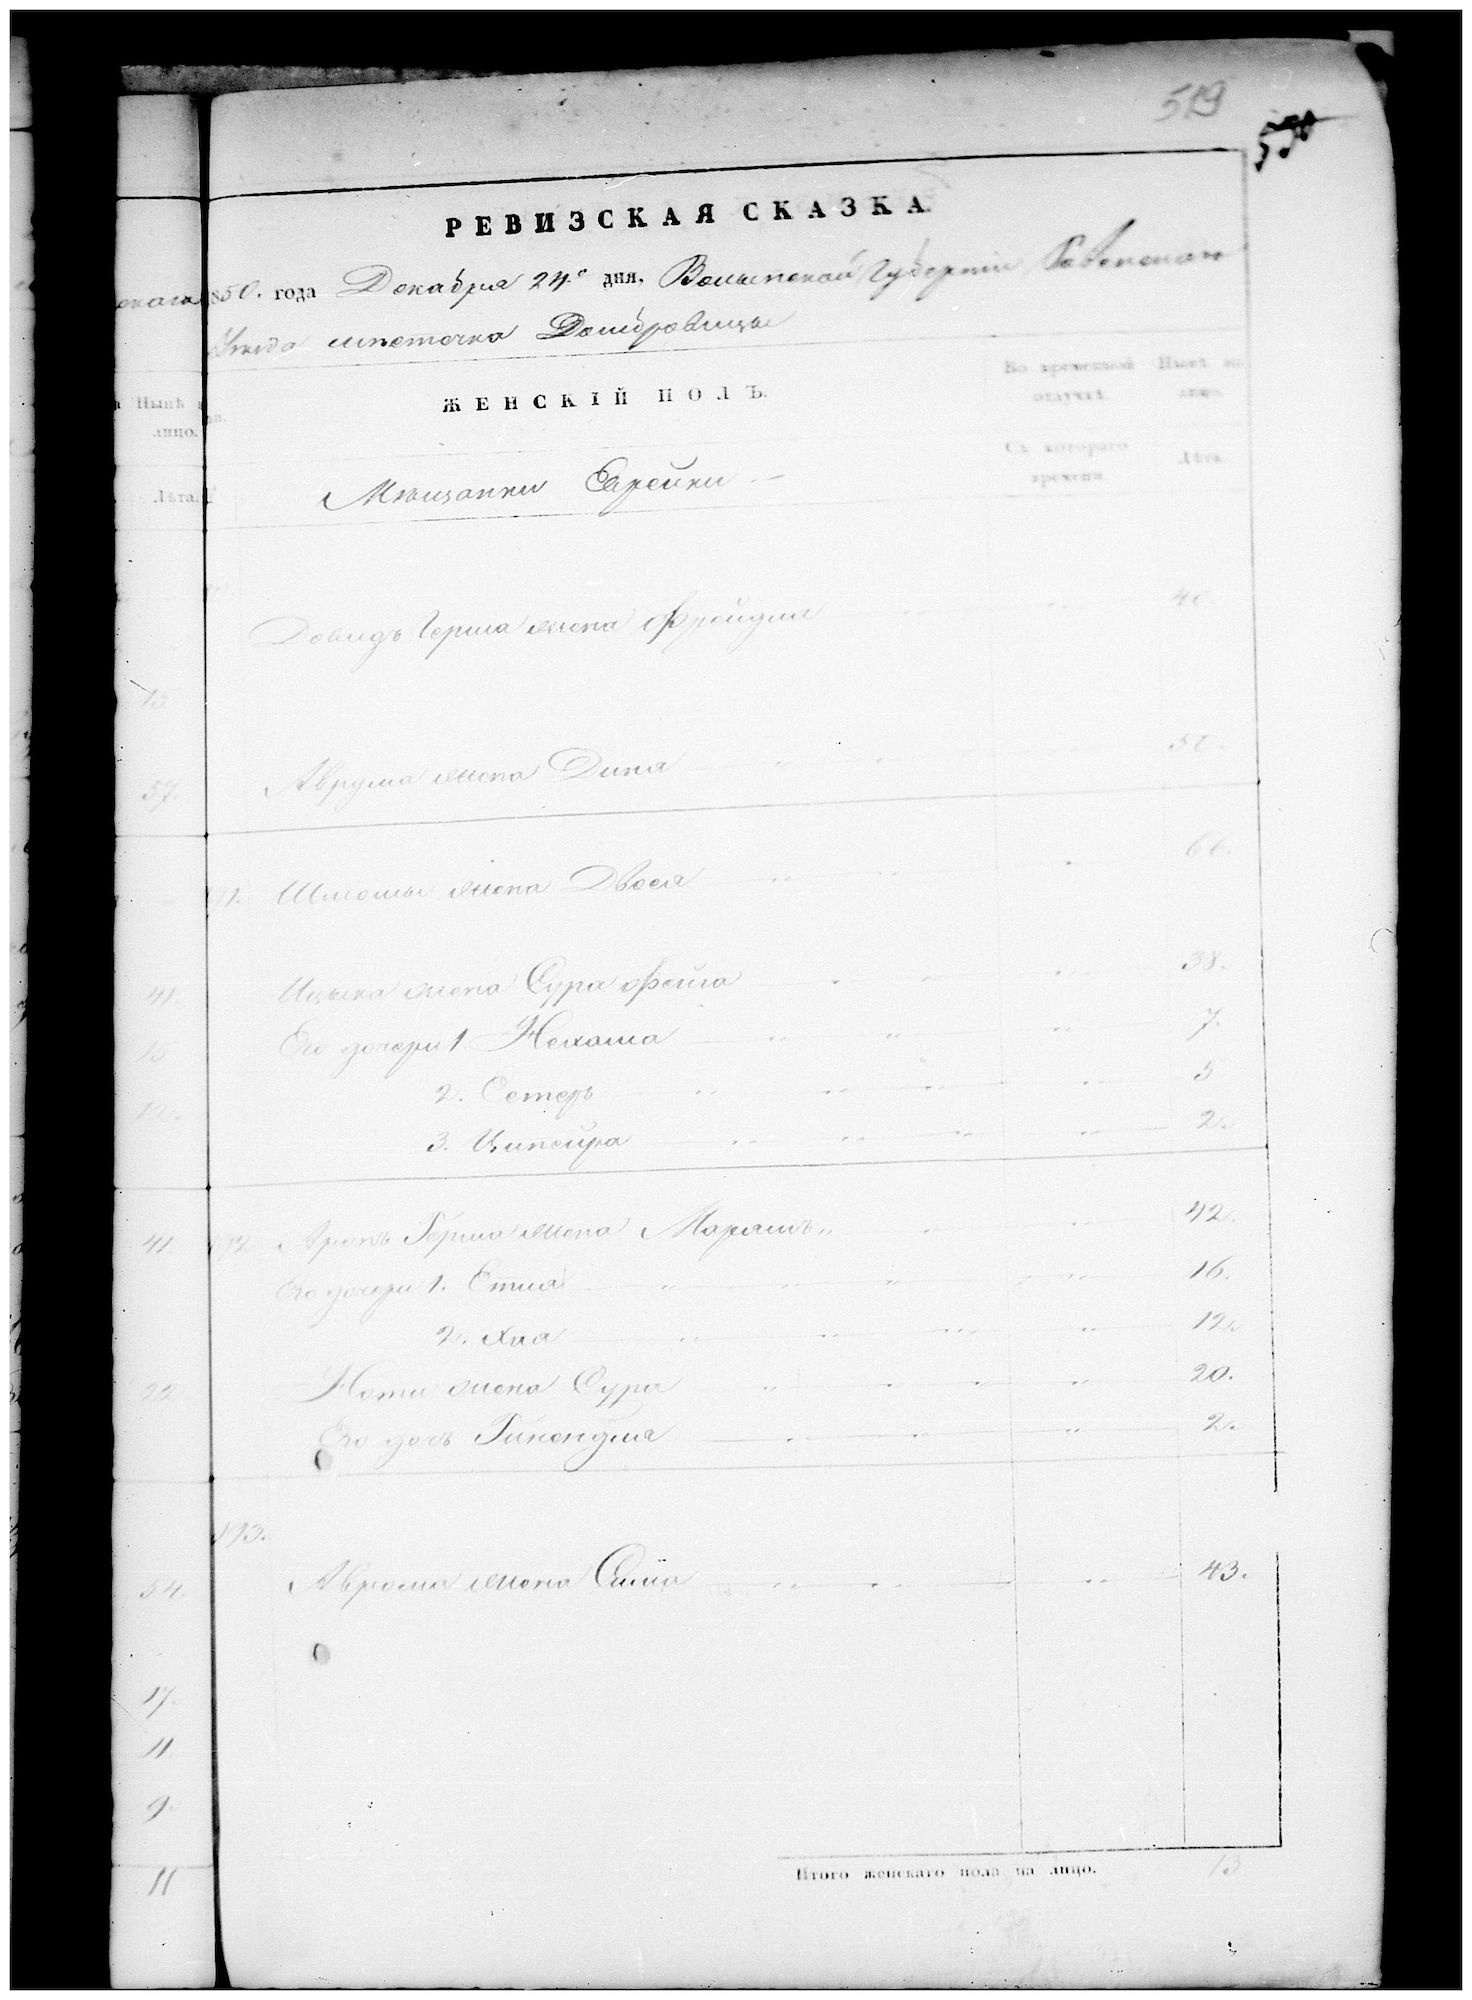 519
РЕВИЗСКАЯ СКАЗКА
850. года Декабря 24.го дня, Волынской Губернии Ровенскаго
Уезда местечка Домбровицы
ЖЕНСКІЙ ПОЛЪ.
Во временной отлучкѣ.
Нынѣ на лицо.
Нынѣ
лицо.
Съ котораго времени
Лѣта.
Лѣта.
Мѣщанки Еврейки
Довидъ Герша жена Фрейдля 40.
15
57. Аврума жена Дина 50.
Шлиомы жена Двося 66.
41. Ицька жена Сура Фейга 38.
15 Его дочери 1. Нехама 7.
12. 2. Естеръ 5
3. Ципойра 2.
41. Аронъ Герша жена Марьямъ 42.
Его дочери 1. Етля 16.
2. Хая 12.
22 Ноти жена Сура 20.
Его дочь Гинендля 2.
193.
54. Аврома жена Сима 43.
17.
11
9.
Итого женскаго пола на лицо. 13
11